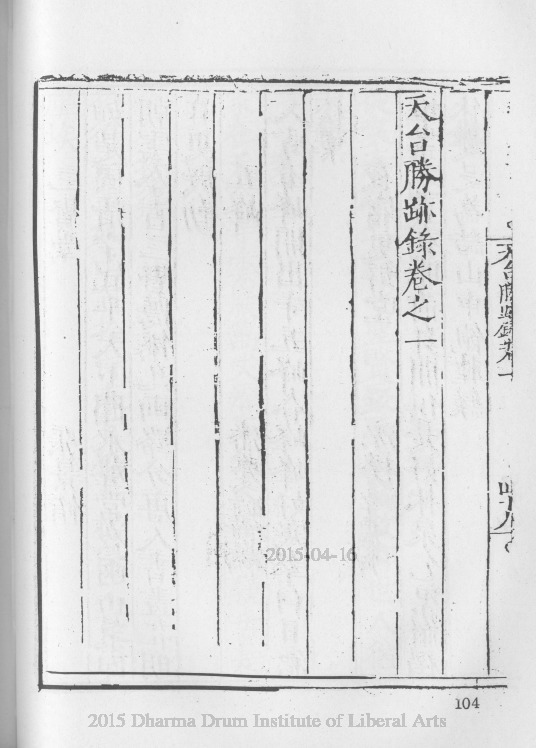 天台勝跡錄卷一
天台勝跡錄卷之一
2015-04-16
104
2015 Dharma Drum Institute of Liberal Arts